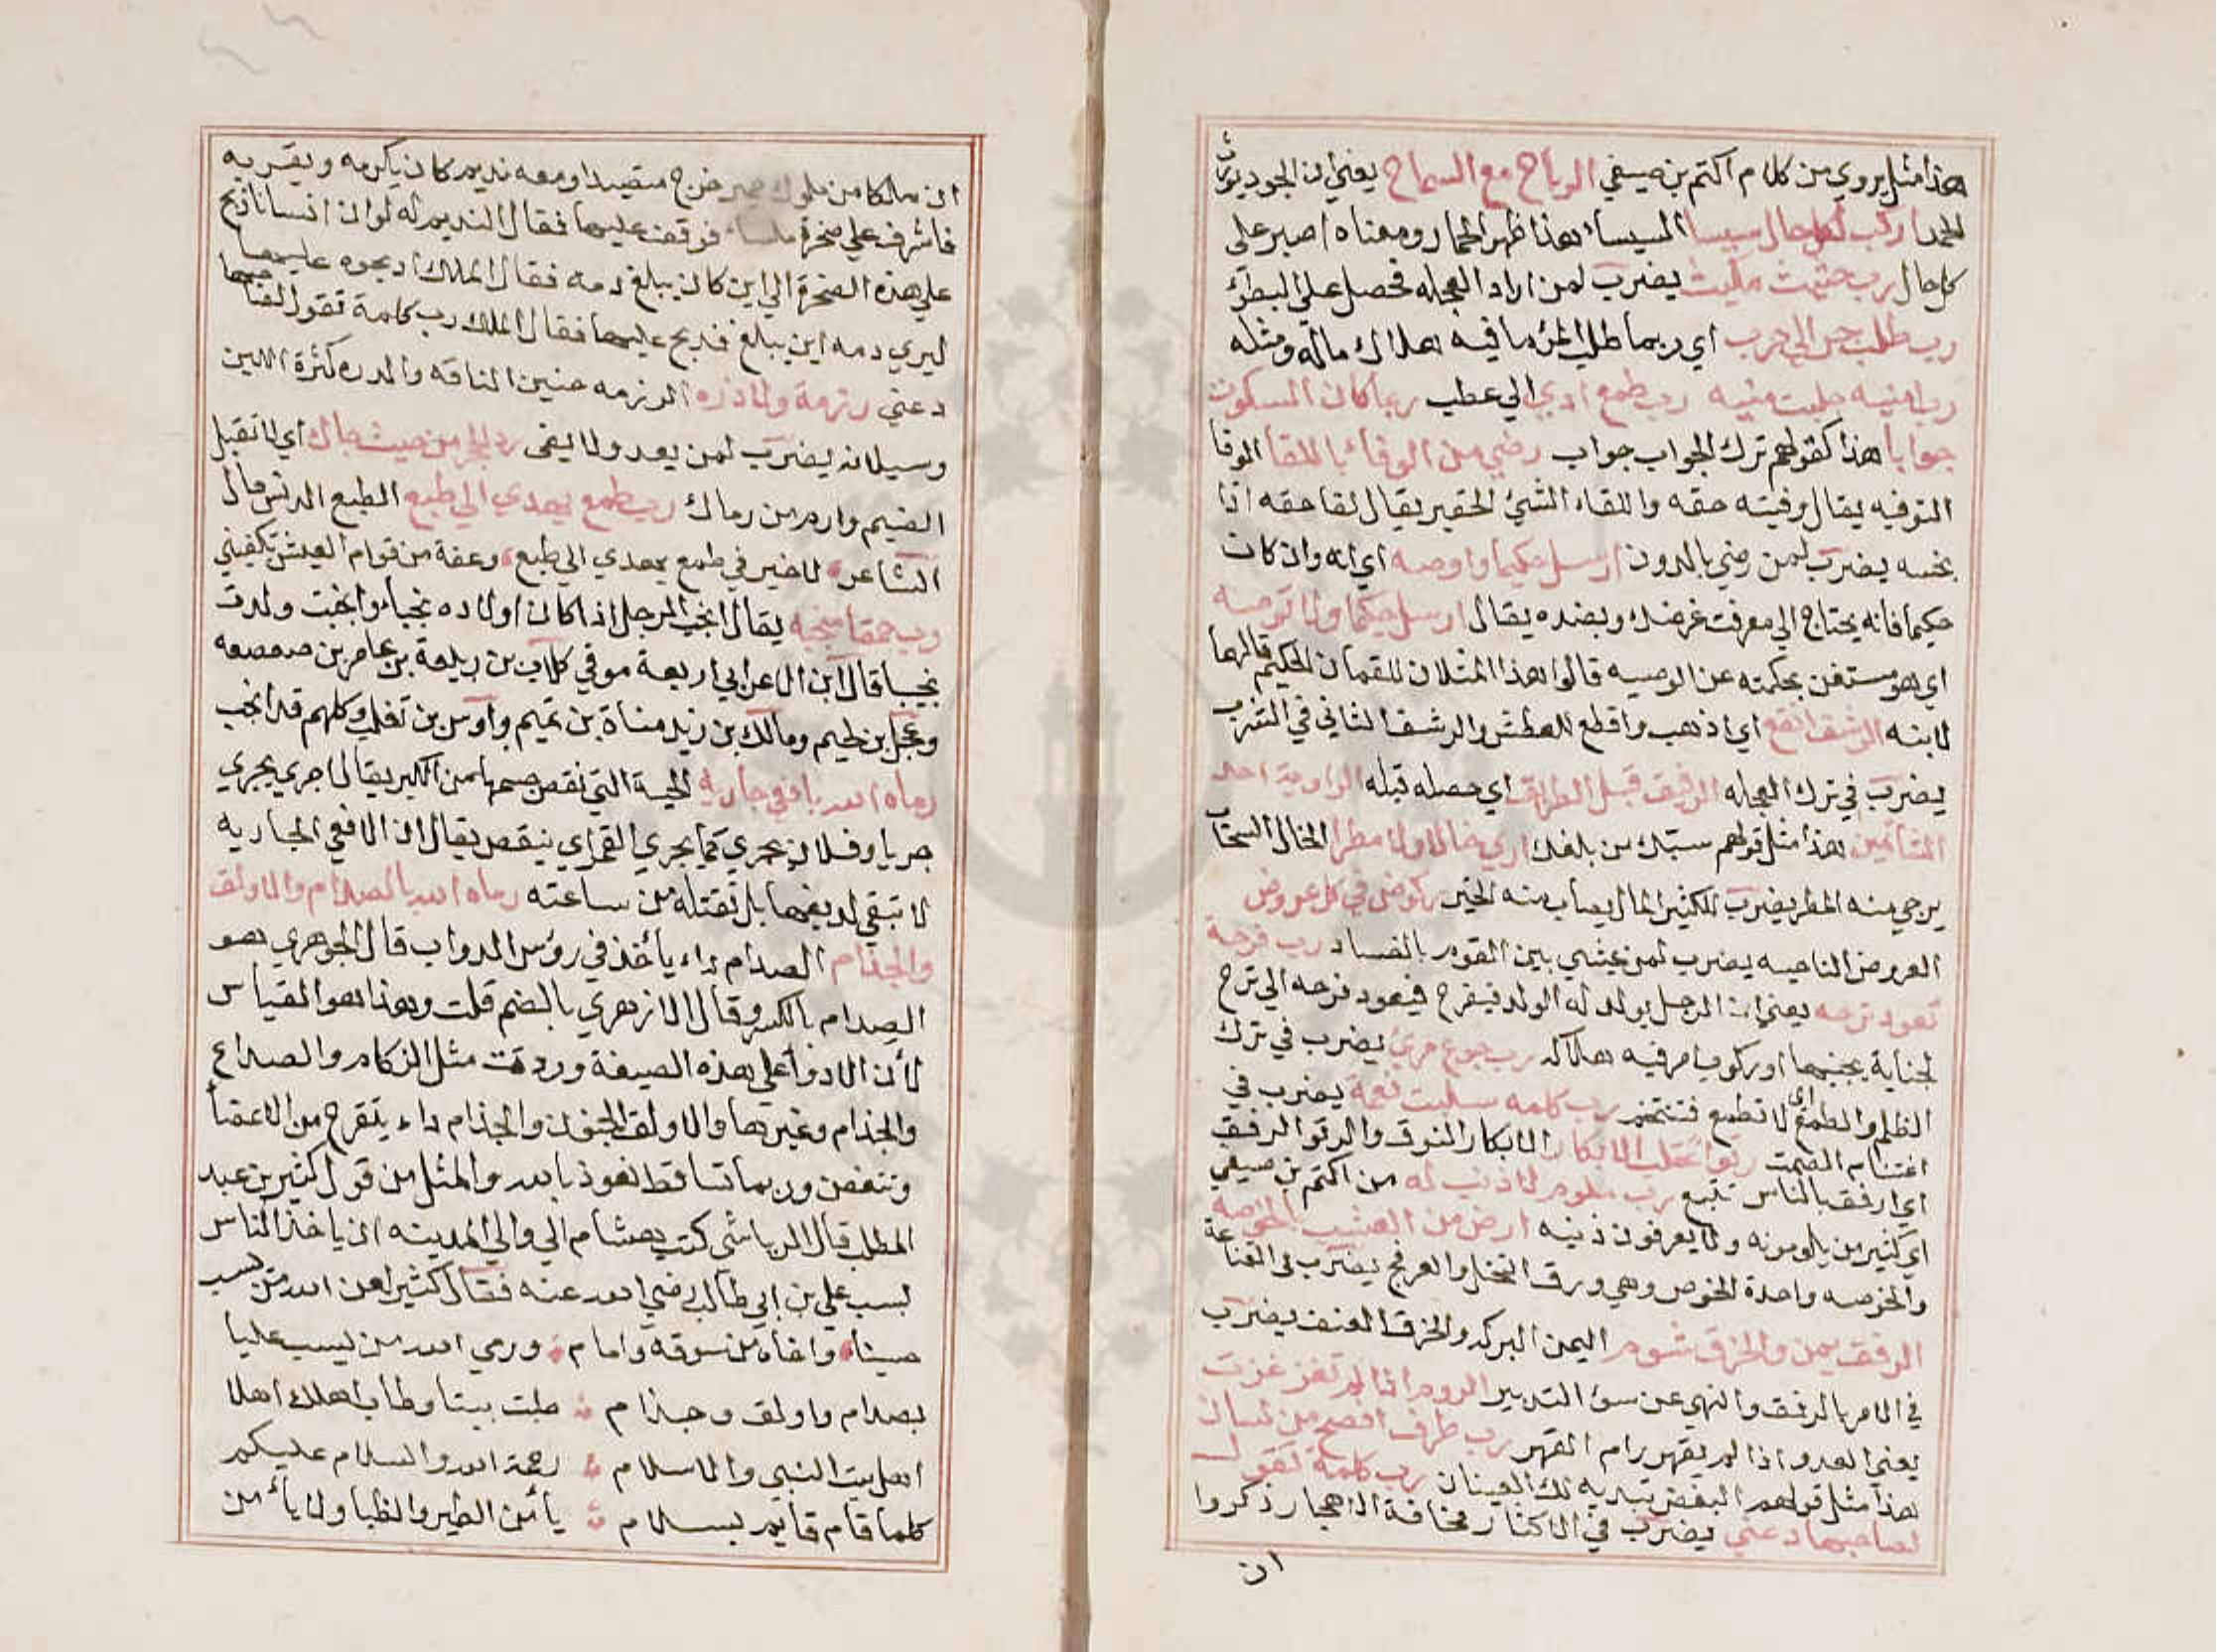 هذا مثل يروى من كلام اكثم بن صيفي الرباح مع السماح يعني ان الجود يورث
الحمد اركب لكل حال سيساء السيساء هذا ظهر الحمار ومعناه اصبر على
كل حال رب حثيث مكيث يضرب لمن اراد العجله فحصل على البطؤ
رب طلب جر الي حرب اي ربما طلب المرء ما فيه هلاك ماله ومثله
رب امنيه جلبت منيه رب طمع ادي الي عطب ربما كان السكوت
جوابا هذا كقولهم ترك الجواب جواب رضي من الوفاء باللقا الوفا
التوفيه يقال وفيته حقه واللقاء الشئ الحقير يقال لقا حقه اذا
بخسه يضرب لمن رضي بالدون ارسل حكيما واوصه اي انه وان كان
حكيما فانه يحتاج الي معرفت غرضك وبضده يقال ارسل حكيما ولا توصه
اي هو مستغن بحكمته عن الوصيه قالوا هذا المثلان للقمان الحكيم قالهما
لابنه الرشف انقع اي اذهب واقطع للعطش والرشف التاني في الشرب
يضرب في ترك العجله الرفيق قبل الطريق اي حصله قبله الراوية احد
الشاتمين هذا مثل قولهم سبك من بلغك اري خالا ولا مطرا الخال السحاب
يرجي منه المطر يضرب للكثير المال يصاب منه الخير ركوض في كل عروض
العروض الناحيه يضرب لمن يمشي بين القوم بالفساد رب فرحة
تعود ترحه يعني ان الرجل يولد له الولد فيفرح فيعود فرحه الي ترح
لجناية يجنيها او ركوب امر فيه هلاكه رب جوع مرئ يضرب في ترك
الظلم والطمع اي لا تطمع فتتخم رب كلمه سلبت نعمة يضرب في
اغتنام الصمت رتوا تحلب الابكار الابكار النوق والرتو الرفق
اي ارفق بالناس تتبع رب ملوم لا ذنب له من اكثم بن صيفي
اي كثير من يلومونه ولا يعرفون ذنبه ارض من العشب بالخوصه
والخوصه واحدة الخوص وهي ورق النخل والعرفج يضرب في القناعة
الرفق يمن والخرق شوم اليمن البركه والخرق العنف يضرب
في الامر بالرفق والنهي عن سوء التدبير الروم اذا لم تغز غزت
يعني العدو اذا لم يقهر رام القهر رب طرف افصح من لسان
هذا مثل قولهم البغض تبديه لك العينان رب كلمة تقول
لصاحبها دعني يضرب في الاكثار مخافة الاهجار ذكروا
ان
ان ملكا من ملوك حمير خرج متصيدا ومعه نديم كان يكرمه ويقربه
فاشرف علي صخرة ملساء فوقف عليها فقال النديم له لو ان انسانا ذبح
علي هذه الصخرة الي اين كان يبلغ دمه فقال الملك اذبحوه عليها
ليري دمه اين يبلغ فذبح عليها فقال الملك رب كلمة تقول لصاحبها
دعني رزمة ولا دره الرزمه حنين الناقه والدره كثرة اللبن
وسيلانه يضرب لمن يعد ولا يفى رد الحجر من حيث جاك اي لا تقبل
الضيم وارم من رماك رب طمع يهدي الي طبع الطبع الدنس قال
الشاعر لا خير في طمع يهدي الي طبع وعفة من قوام العيش تكفيني
رب حمقا منجبه يقال انجب الرجل اذا كان اولاده نجباء وانجبت ولدت
نجيبا قال ابن الاعرابي اربعة موقي كلاب بن ربيعة بن عامر بن صعصعه
وعجل بن لجيم ومالك بن زيد مناة بن تميم واوس بن تغلب وكلهم قد انجب
رماه الله بافعي جاريه الحية التي نقص جسمها من الكبر يقال اجري يجري
جريا وفلان يجري كما يجري القمر اي ينقص يقال ان الافعي الجاريه
لا تبقي لديغها بل تقتله من ساعته رماه الله بالصدام والاولق
والجذام الصدام داء يأخذ في رؤس الدواب قال الجوهري هو
الصدام بالكسر وقال الازهري بالضم قلت وهذا هو القياس
لأن الادواء علي هذه الصيغة وردت مثل الزكام والصداع
والجذام وغيرها والاولق الجنون والجذام داء يتقرح من الاعضاء
وتتغفن وربما تساقط نعوذ بالله والمثل من قول كثير بن عبد
المطلب قال الرياشي كتب هشام الي والي المدينه ان ياخذ الناس
بسب علي بن ابي طالب رضي الله عنه فقال كثير لعن الله من يسب
حسينا واخاه من سوقة وامام ورمي الله من يسب عليا
بصدام واولق وجذام طبت بيتا وطاب اهلك اهلا
اهل بيت النبي والاسلام رحمة الله والسلام عليكم
كلما قام قايم بسلام يأمن الطير والظبا ولا يأمن